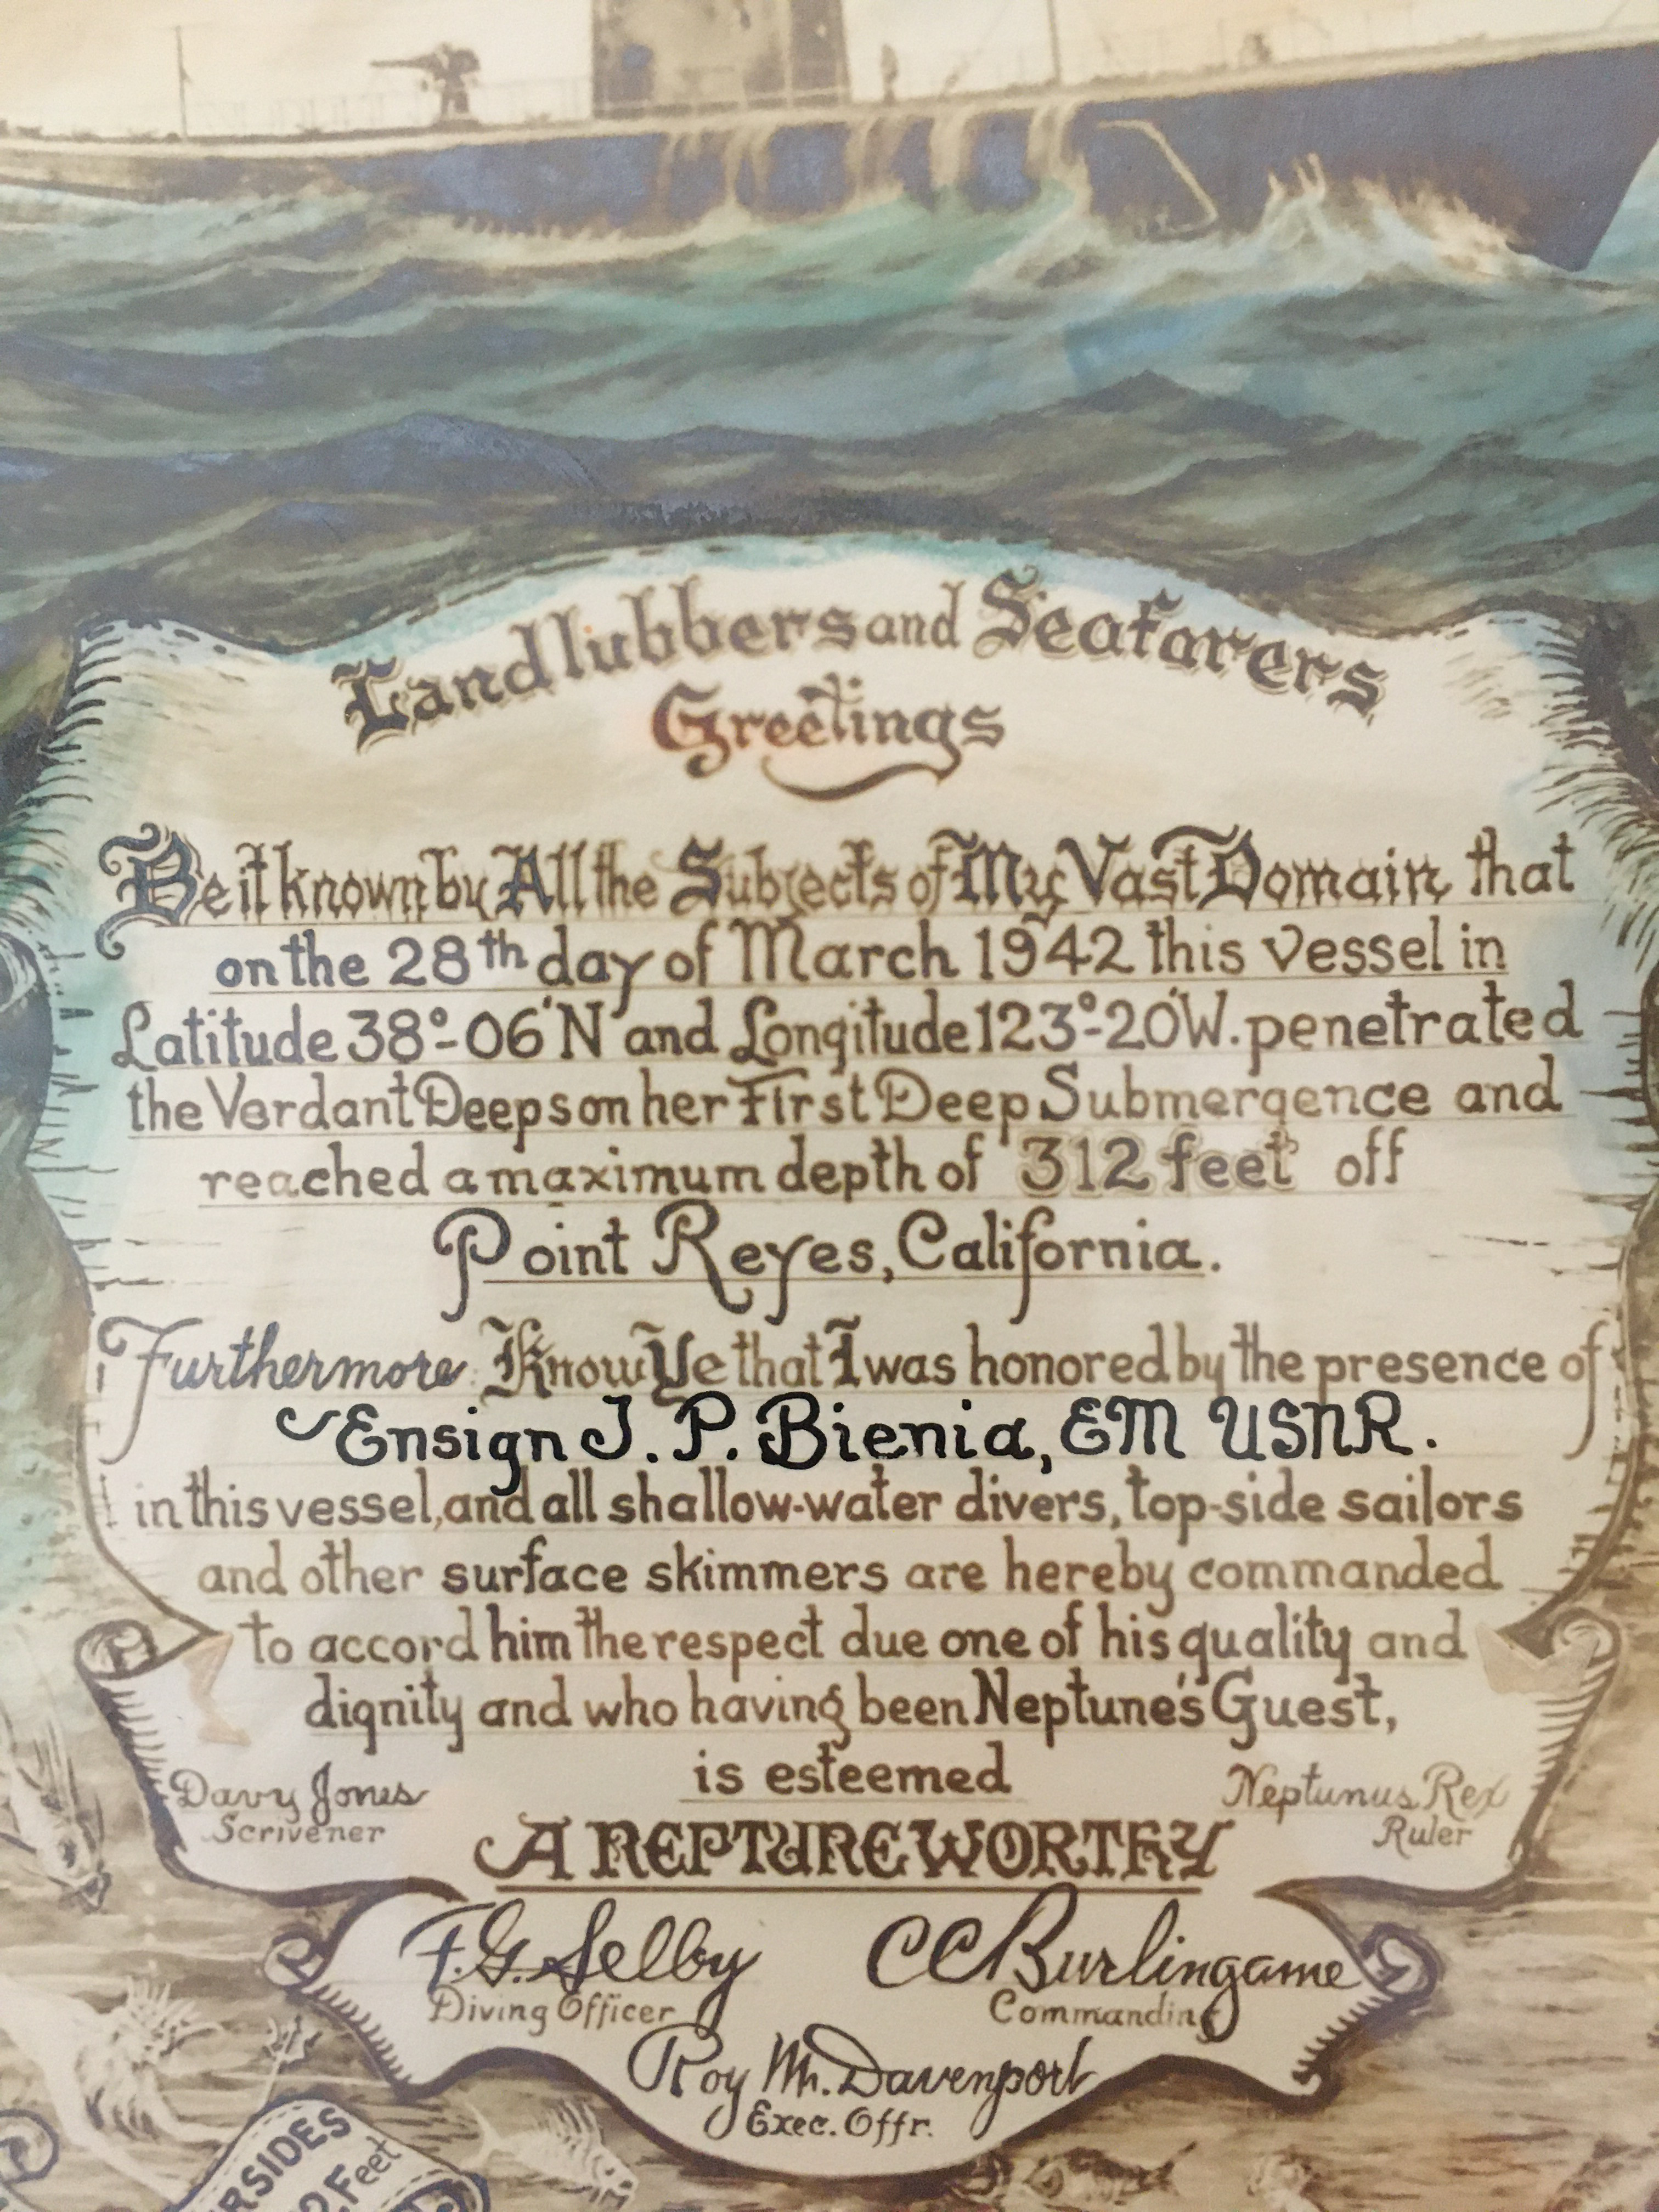 Landlubbers and Seafarers
Greetings
Be it known by All the Subjects of My Vast Domain that
on the 28th day of March 1942 this vessel in
Latitude 38°-06'N and Longitude 123°-20'W. penetrated
the Verdant Deeps on her First Deep Submergence and
reached a maximum depth of 312 feet off
Point Reyes, California.
Furthermore Know Ye that I was honored by the presence of
Ensign J. P. Bienia, EM USNR.
in this vessel, and all shallow-water divers, top-side sailors
and other surface skimmers are hereby commanded
to accord him the respect due one of his quality and
dignity and who having been Neptune's Guest,
is esteemed
Davy Jones
Scrivener
Neptunus Rex
Ruler
A NEPTUNEWORTHY
F.G. Selby
Diving Officer
CC Burlingame
Commanding
Roy M. Davenport
Exec. Offr.
RSIDES
2 Feet